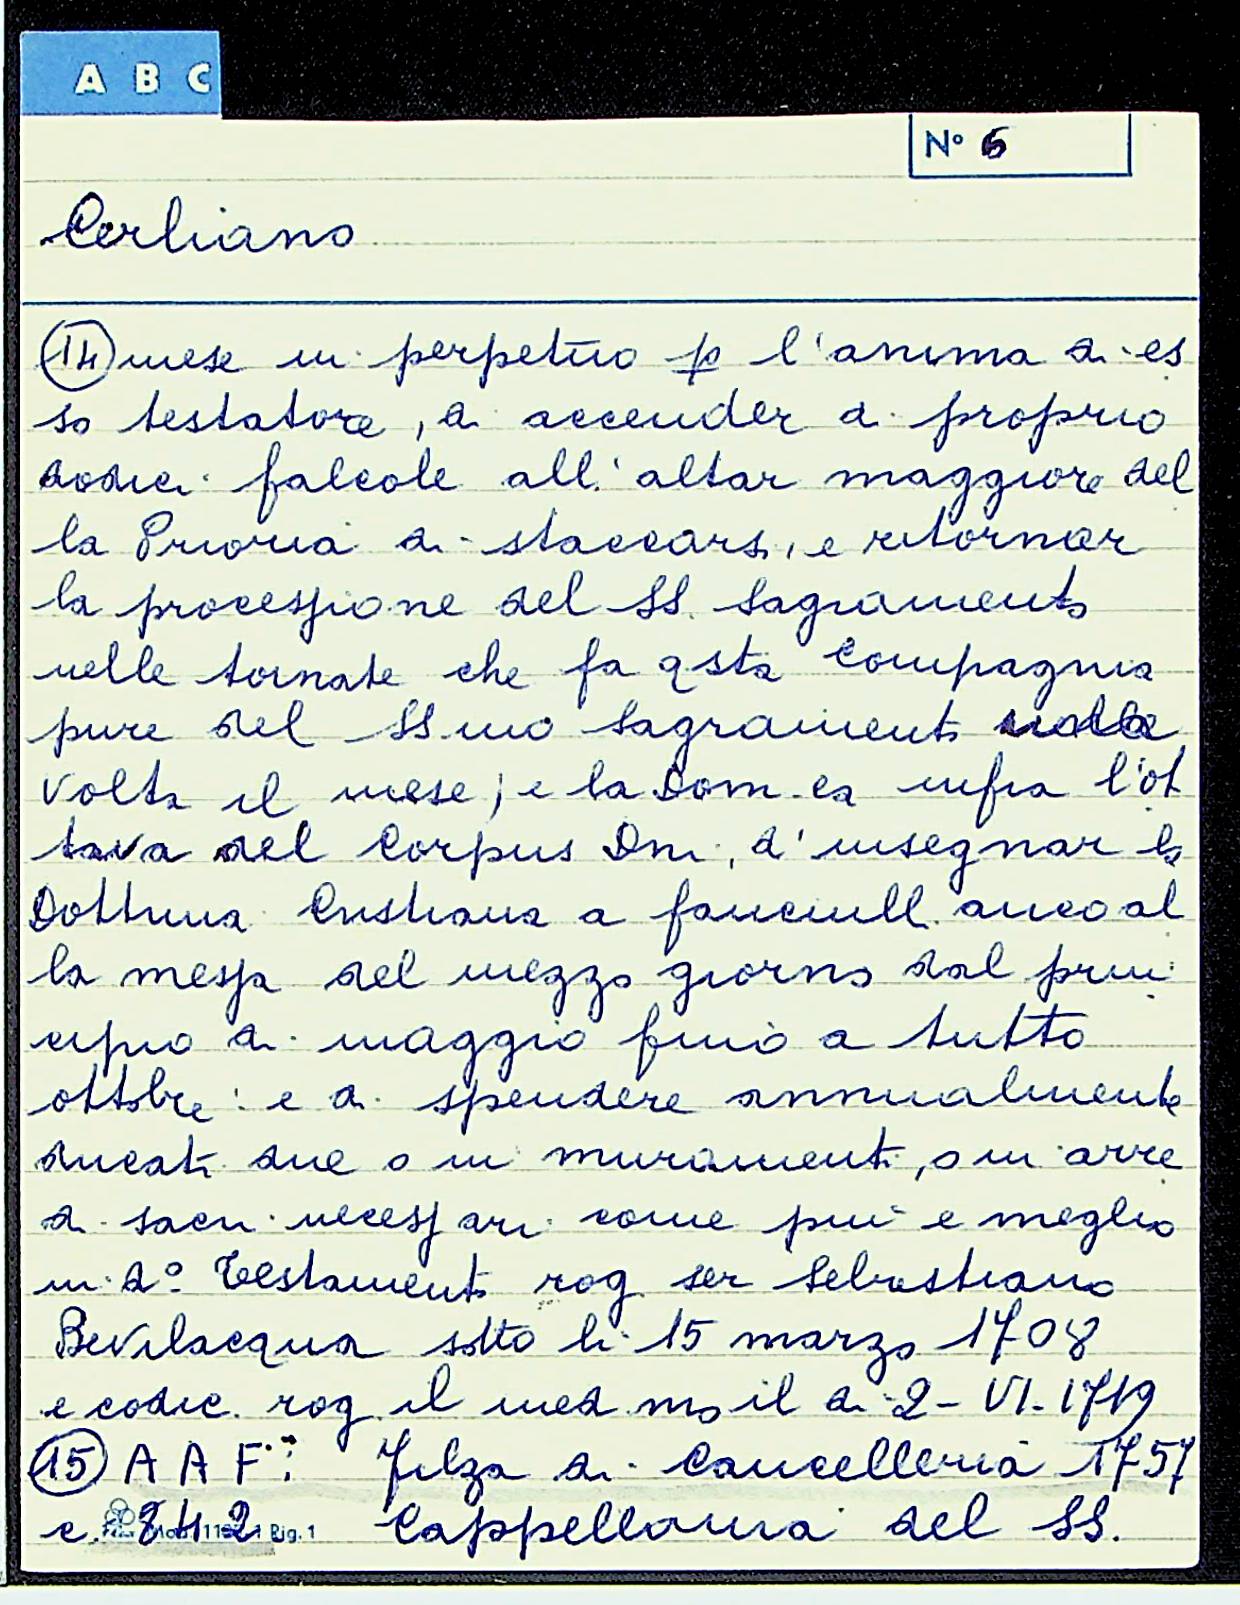 A B C
N° 6
Cerliano
(14) mese in perpetuo p l'anima di es
so testatore, di accender a proprio
dodici falcole all'altar maggiore del
la Prioria di staccars, e ritornar
la processione del SS. Sagramento
nelle tornate che fa qsta Compagnia
pure del SS.mo Sagramento
volta il mese; e la Dom.ca infra l'ot
tava del Corpus Dni, d'insegnar la
Dottrina Cristiana a fanciulli anco al
la messa del mezzo giorno dal prin
cipio di maggio fino a tutto
ottobre: e di spendere annualmente
ducati due o in muramenti, o in arre
di sacri necessari come più e meglio
in d° Testamento rog ser Sebastiano
Bevilacqua sotto li 15 marzo 1708
e codic. rog il med mo il dì 2-VI-1719
(15) A A F: Filza di Cancelleria 1757
c. 842 Cappellania del SS.
Rig. 1